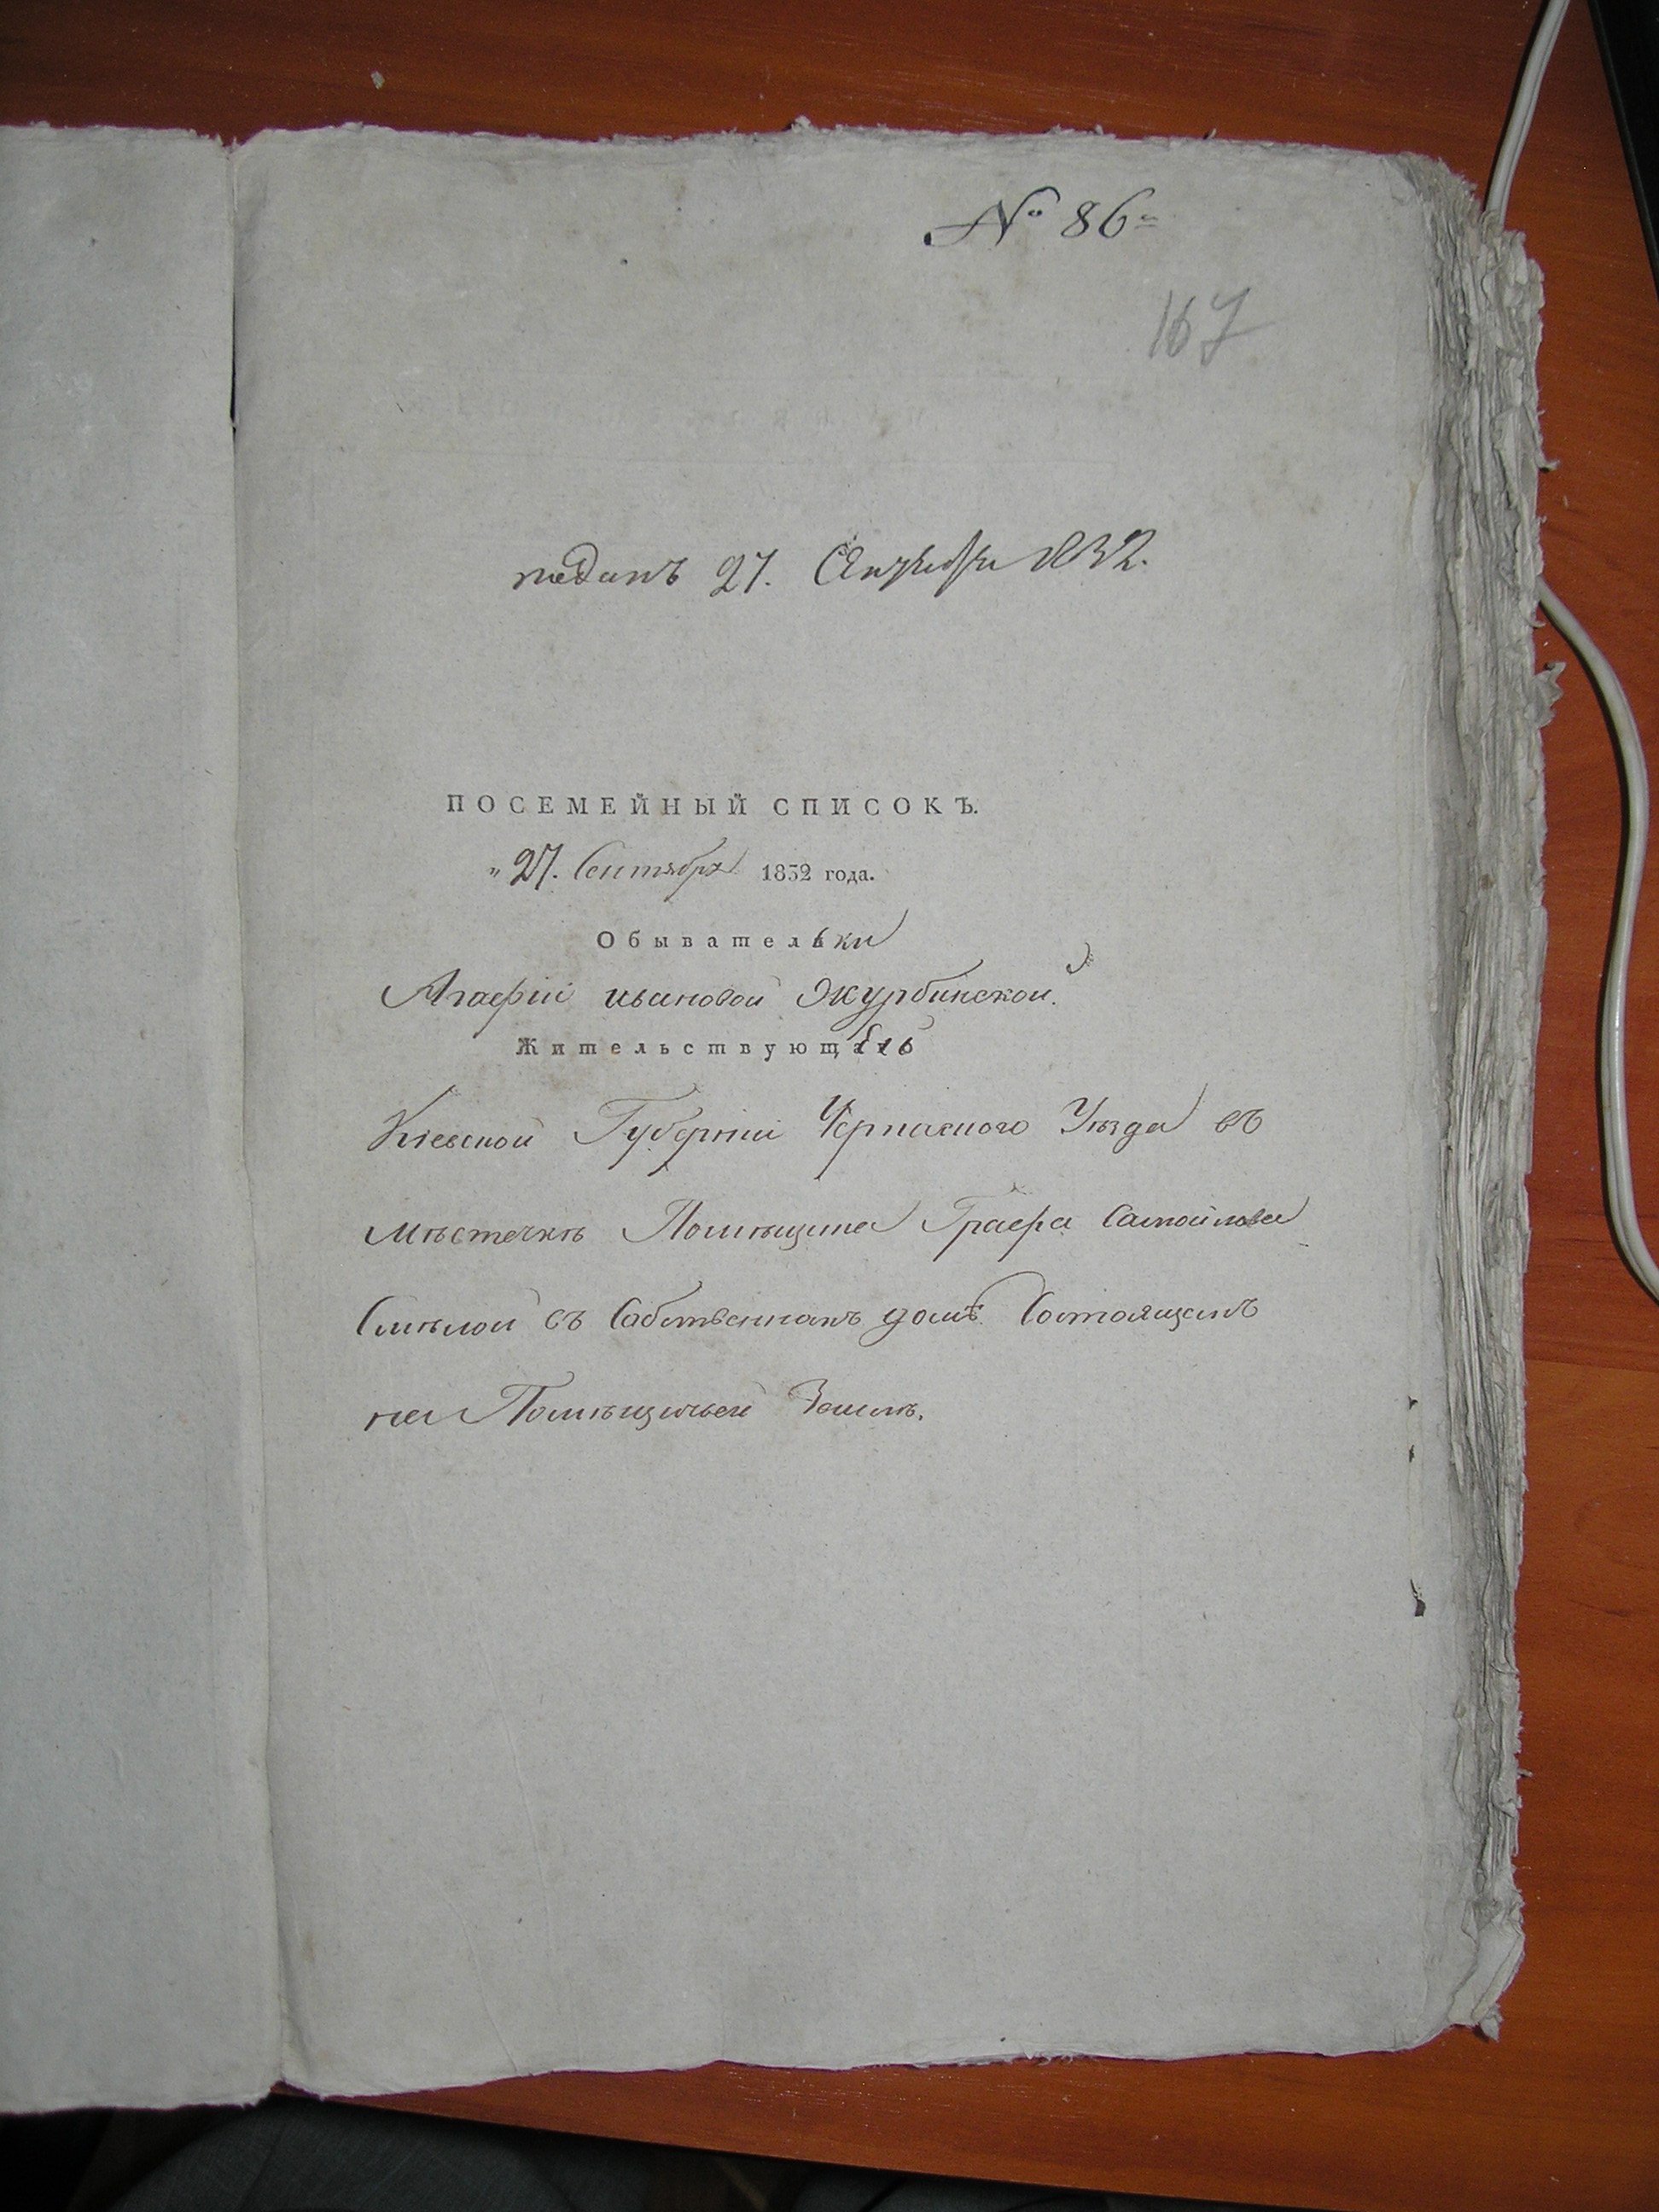 № 86
167
поданъ 27. Сентября 1832.
ПОСЕМЕЙНЫЙ СПИСОКЪ.
„ 27. Сентября 1832 года.
Обывательки
Агафіи Ивановой Журбинской
Жительствующ
Кіевской Губерніи Черкаского Уѣзда въ
Мѣстечкѣ Помѣщика Графа Самойлова
Смѣлой въ Собственномъ домѣ Состоящемъ
на Помѣщичьей Землѣ.